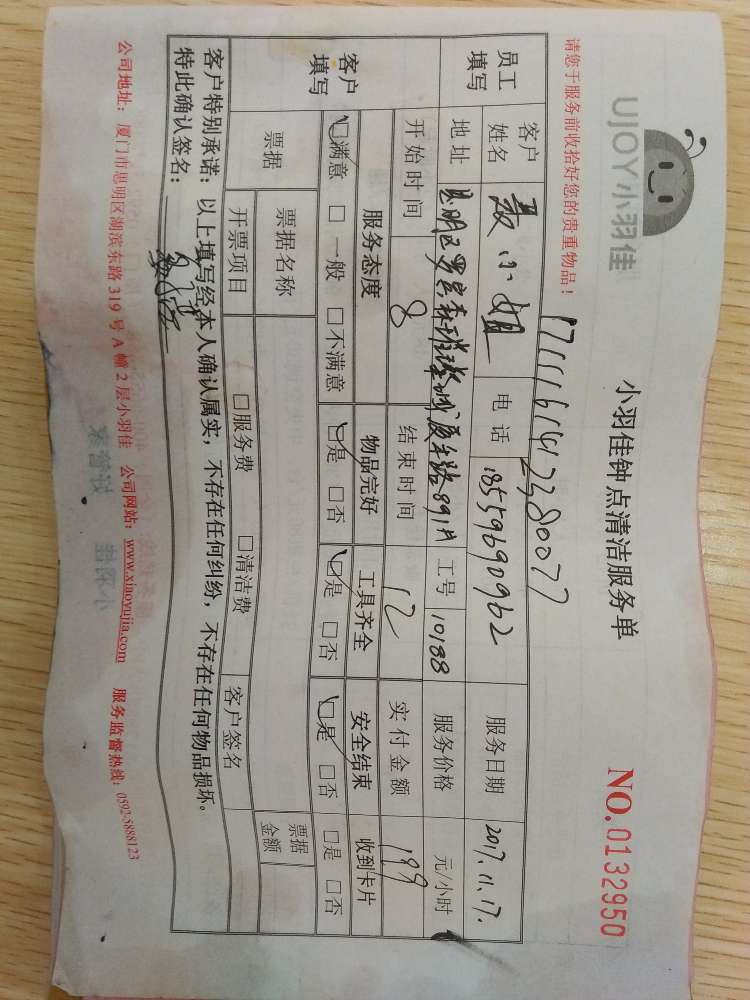 UJOY小羽佳
小羽佳钟点清洁服务单
NO.0132950
请您于服务前收拾好您的贵重物品！
1711161412380077
员工填写
客户姓名 聂小姐 电话 18559690962 服务日期 2017.11.17.
地址 思明区 工号 10188 服务价格 元/小时
开始时间 8 结束时间 12 实付金额 199
客户填写
服务态度 物品完好 工具齐全 安全结束 收到卡片
☑满意 □一般 □不满意 ☑是 □否 ☑是 □否 ☑是 □否 □是 □否
票据 票据名称 票据金额
开票项目 □服务费 □清洁费 客户签名
客户特别承诺：以上填写经本人确认属实，不存在任何纠纷，不存在任何物品损坏。
特此确认签名：
公司地址：厦门市思明区湖滨东路 319 号 A 幢 2 层小羽佳 公司网站：www.xiaoyujia.com 服务监督热线：0592-5888123